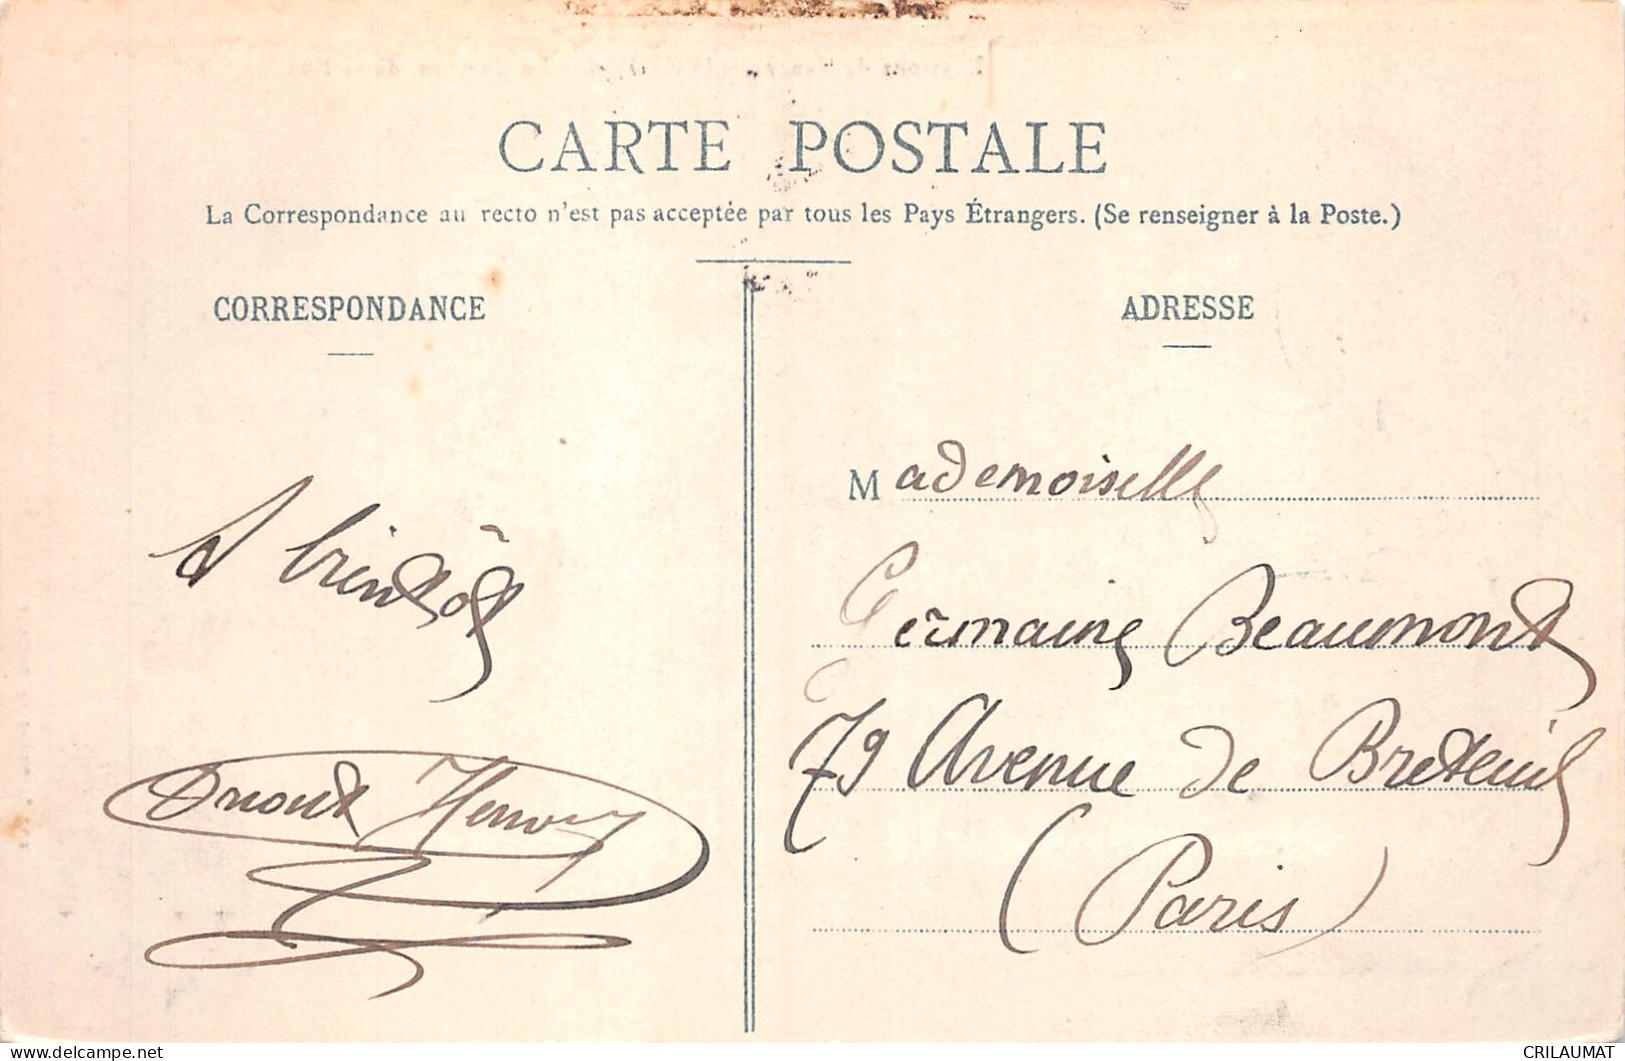 CARTE POSTALE
La Correspondance au recto n'est pas acceptée par tous les Pays Étrangers. (Se renseigner à la Poste.)
CORRESPONDANCE
A bientôt
Henry
ADRESSE
Mademoiselle
Germaine Beaumont
79 Avenue de Breteuil
(Paris)
delcampe.net
CRILAUMAT